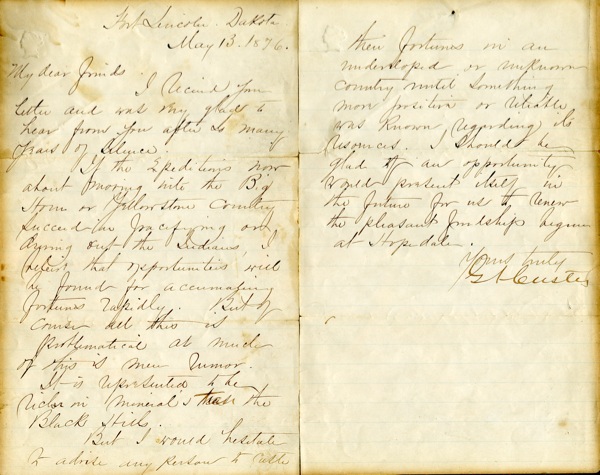 Fort Lincoln. Dakota
May 13. 1876.
My dear Friends.
I received your
letter and was very glad to
hear from you after so many
years of silence.
If the Expeditions now
about moving into the Big
Horn or Yellowstone Country
succeed in pacifying or
driving out the Indians, I
believe that opportunities will
be found for accumulating
fortunes rapidly. But of
course all this is
problematical as much
of this is mere rumor.
It is represented to be
richer in minerals than the
Black Hills.
But I would hesitate
to advise any person to
their fortunes in an
undeveloped or unknown
country until something
more positive or reliable
was known, regarding its
resources. I should be
glad if an opportunity
would present itself in
the future for us to renew
the pleasant friendship begun
at Hopedale.
Yours truly
G A Custer